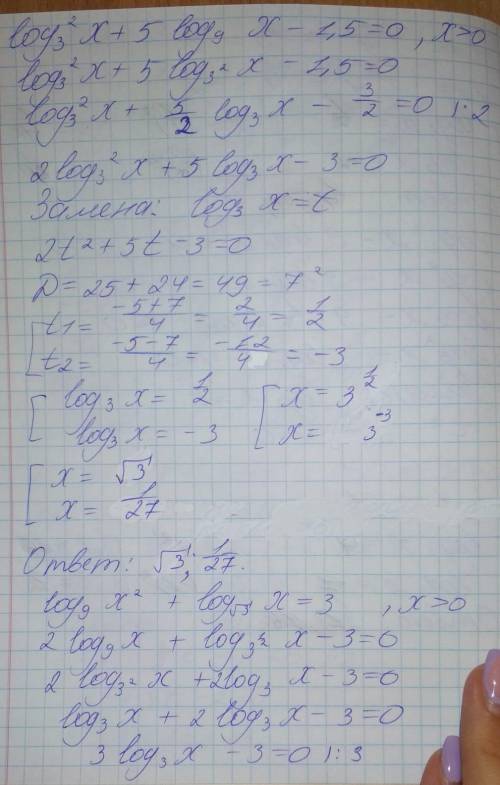 log₃² x + 5 log₉ x − 1,5 = 0 , x > 0
log₃² x + 5 log₃² x − 1,5 = 0
log₃² x + 5/2 log₃ x − 3/2 = 0 | : 2
2 log₃² x + 5 log₃ x − 3 = 0
Замена: log₃ x = t
2t² + 5t − 3 = 0
D = 25 + 24 = 49 = 7²
[ t1 = (−5+7)/4 = 2/4 = 1/2
[ t2 = (−5−7)/4 = −12/4 = −3
[ log₃ x = 1/2 [ x = 3^(1/2)
[ log₃ x = −3 [ x = 3^(−3)
[ x = √3
[ x = 1/27
Ответ: √3; 1/27.
log₉ x² + log_√3 x = 3 , x > 0
2 log₉ x + log_3^(1/2) x − 3 = 0
2 log_3² x + 2 log₃ x − 3 = 0
log₃ x + 2 log₃ x − 3 = 0
3 log₃ x − 3 = 0 | : 3